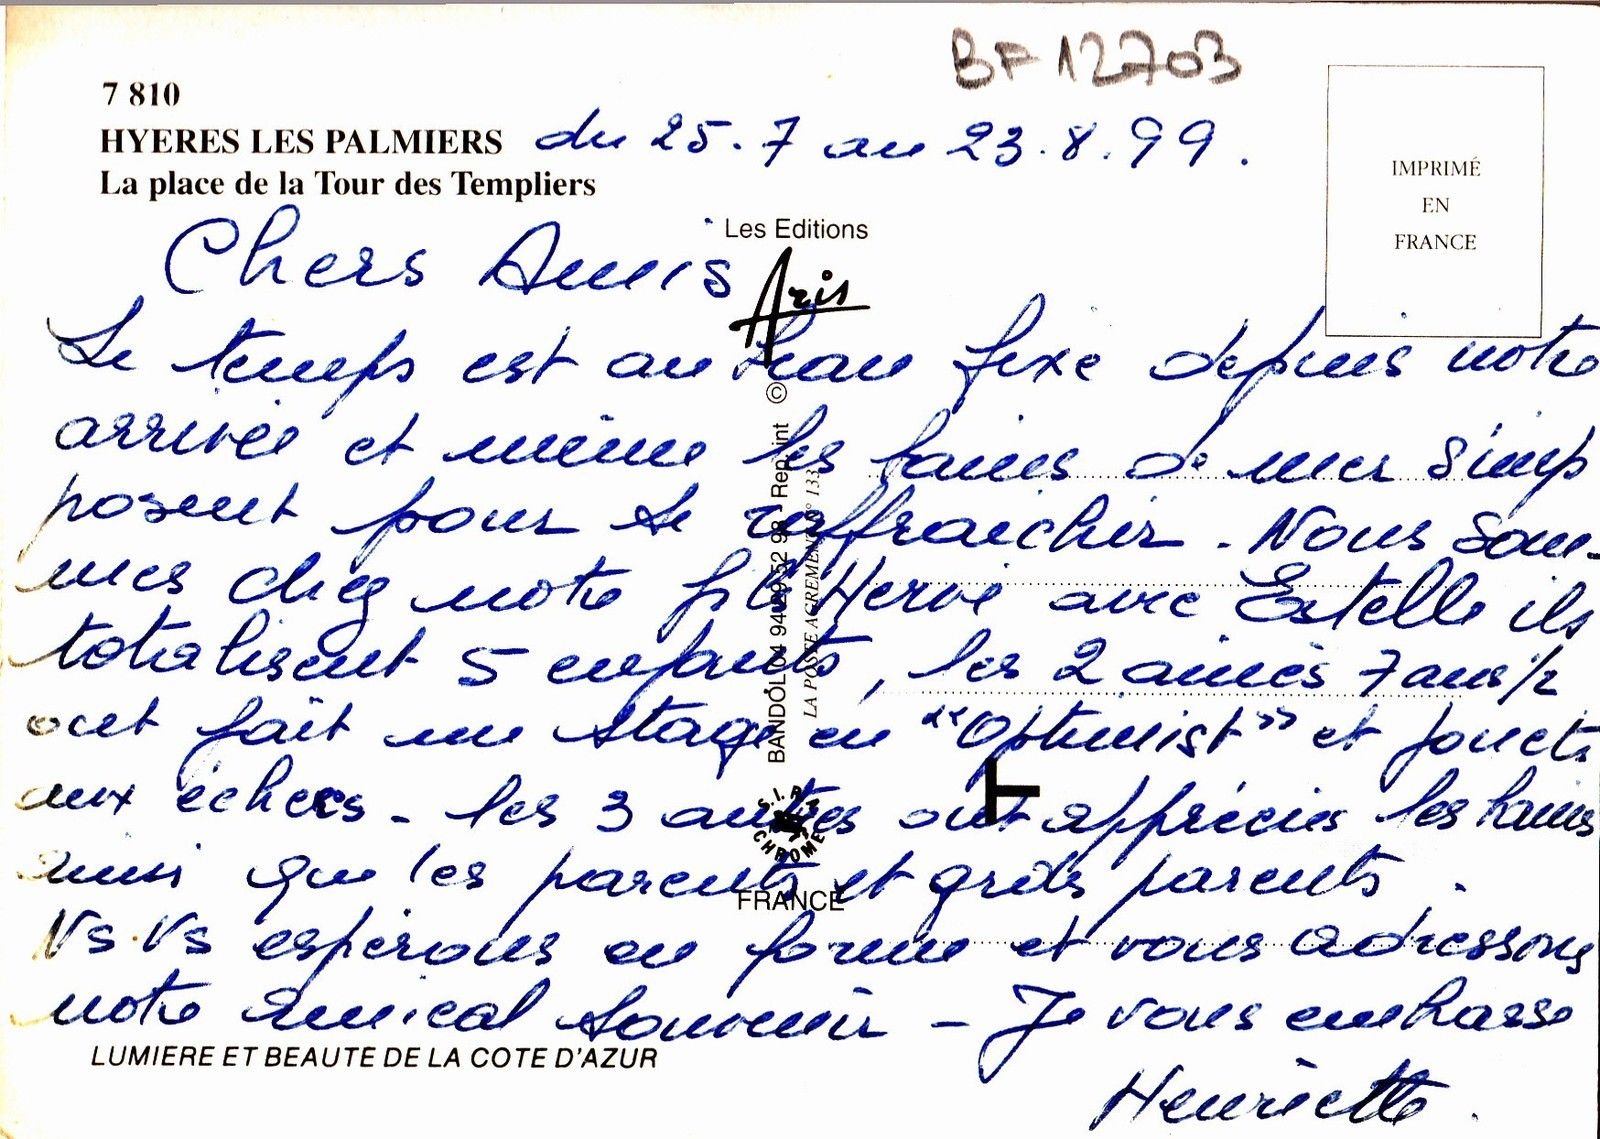 BF 12703
7 810
HYERES LES PALMIERS du 25.7 au 23.8.99.
La place de la Tour des Templiers
IMPRIMÉ
EN
FRANCE
Les Editions
Aris
Chers Amis
Le temps est au beau fixe depuis notre
arrivée et même les bains de mer s'imp
posent pour se raffraichir. Nous som-
mes chez notre fils Hervé avec Estelle ils
totalisent 5 enfants, les 2 ainés 7 ans 1/2
ont fait un stage en "Optimist" et jouent
aux échecs - les 3 autres ont appréciés les bains
ainsi que les parents et grds parents.
Ns Vs espérons en forme et vous adressons
notre amical souvenir - Je vous embrasse
Henriette.
BANDOL 04 94 29 52 98 Reprint ©
LA POSTE AGREMENT N° 133
CHROME
FRANCE
LUMIERE ET BEAUTE DE LA COTE D'AZUR